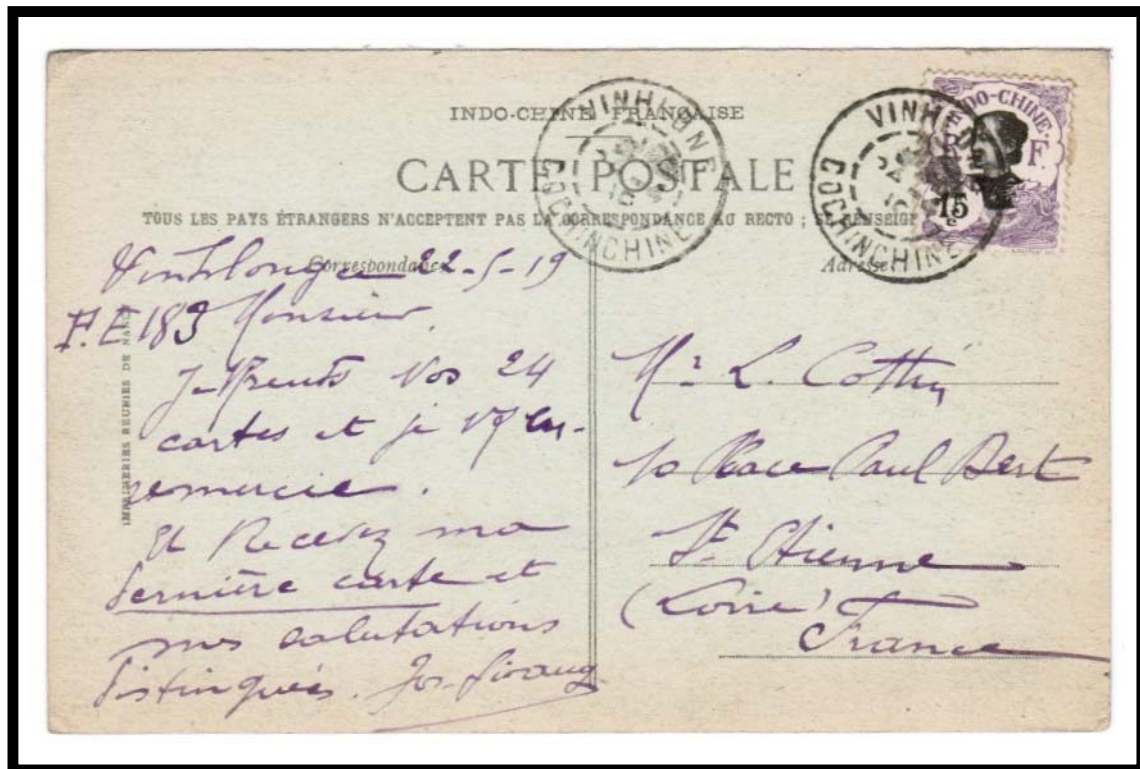 INDO-CHINE FRANÇAISE
CARTE POSTALE
TOUS LES PAYS ÉTRANGERS N'ACCEPTENT PAS LA CORRESPONDANCE AU RECTO ; SE RENSEIG
Correspondance
Adresse
VINHLONG
COCHINCHINE
VINHLONG
COCHINCHINE
INDO-CHINE
R F
15
c
IMPRIMERIES REUNIES DE NANCY
Vinhlong 22-5-19
F.E 183 Monsieur
Je Vos 24
cartes et je
remercie.
Et Recevez ma
dernière carte et
mes salutations
distinguées. Jos.
Mr L. Cottin
10 Place Paul Bert
St Etienne
(Loire)
France